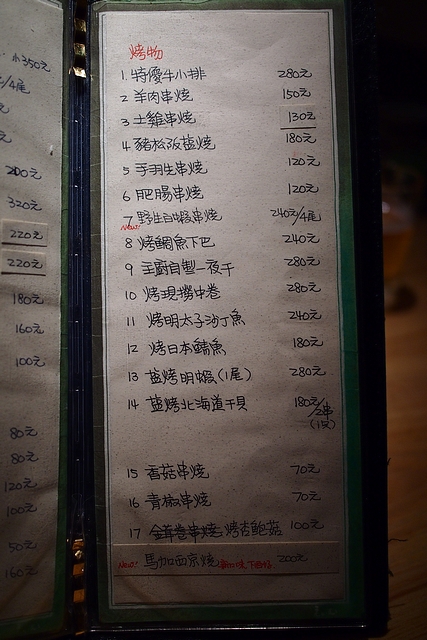 小350元
/4尾
元
元
200元
320元
220元
220元
180元
160元
100元
80元
80元
120元
100元
50元
160元
烤物
1. 特優牛小排 280元
2 羊肉串燒 150元
3 土雞串燒 130元
4 豬松阪鹽燒 180元
5 手羽先串燒 120元
6 肥腸串燒 120元
7 野生白蝦串燒 240元/4尾
New!
8 烤鯛魚下巴 240元
9 主廚自製一夜干 280元
10 烤現撈中卷 280元
11 烤明太子沙丁魚 240元
12 烤日本鯖魚 180元
13 鹽烤明蝦(1尾) 280元
14 鹽烤北海道干貝 180元/2串
(1只)
15 香菇串燒 70元
16 青椒串燒 70元
17 金茸卷串燒 烤杏鮑菇 100元
New! 馬加西京燒 200元